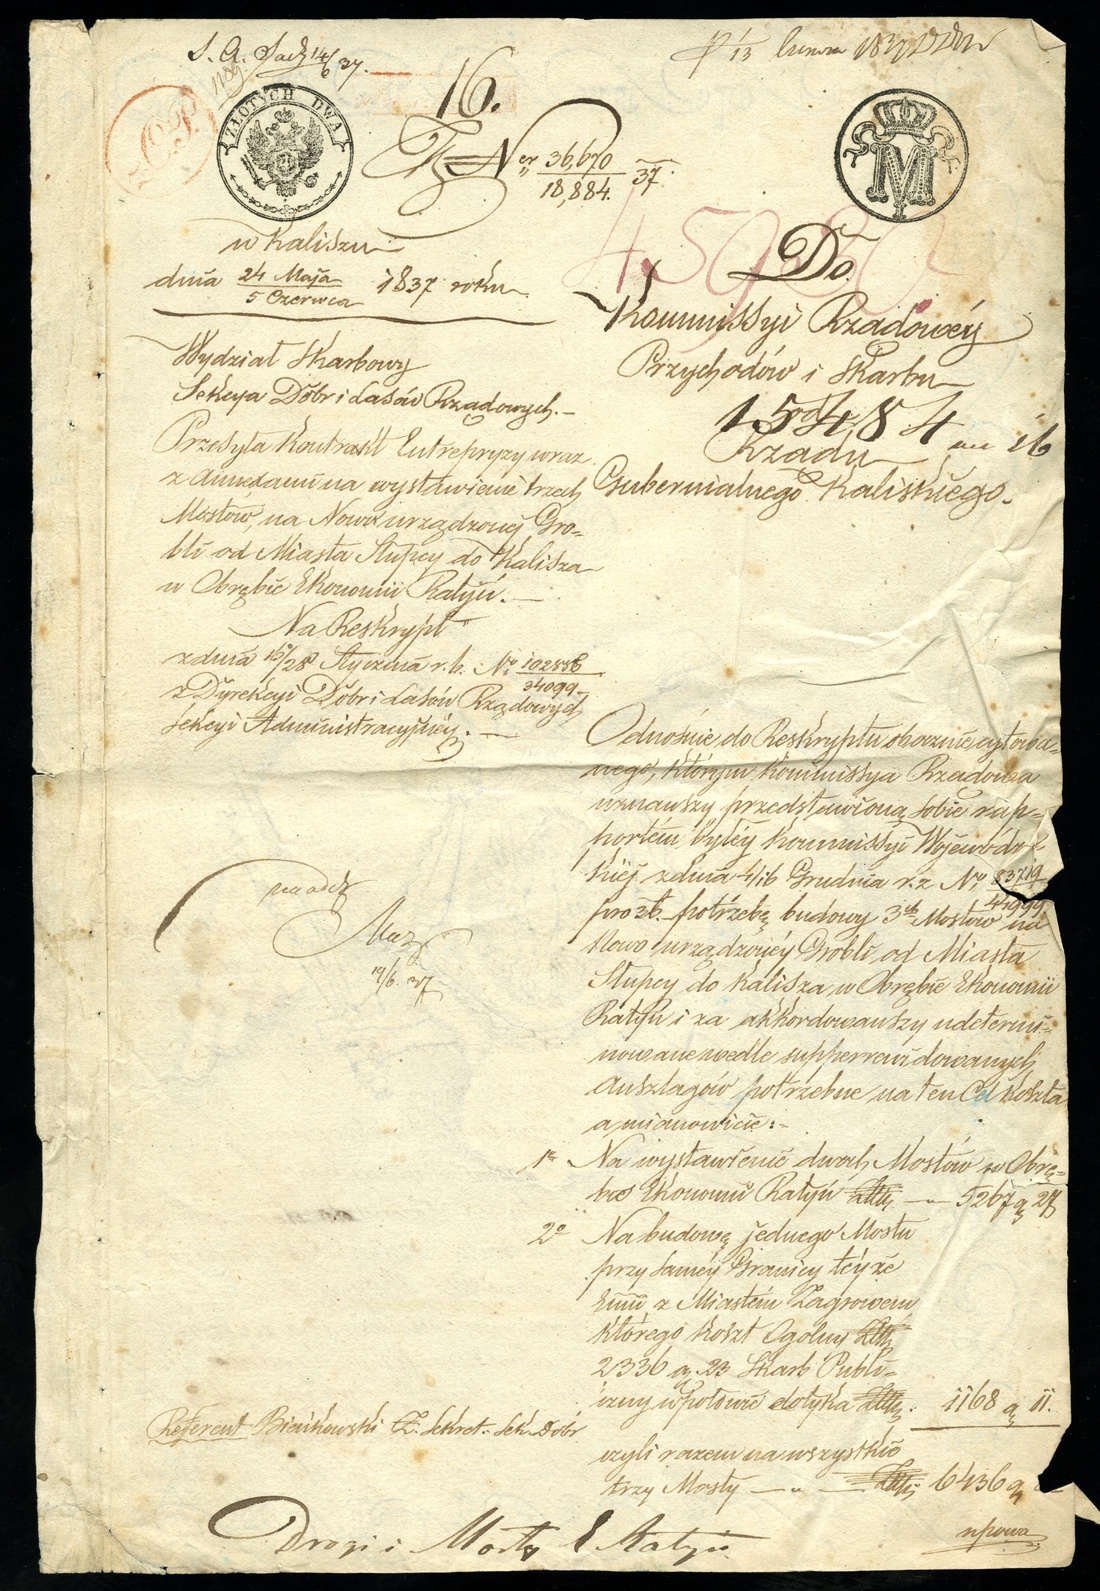 S. A. Sach 14/6 37.
℔ 13 Czerwca 1837
16.
ZŁOTYCH DWA
M
Ner 36,670
18,884. 37.
45980
w Kaliszu
dnia 24 Maja
5 Czerwca 1837 roku
Do
Kommissyi Rządowéy
Przychodów i Skarbu
15484
od
Rządu
16
Gubernialnego Kaliskiego.
Wydział Skarbowy
Sekcya Dóbr i Lasów Rządowych. -
Przesyła Kontrakt Entrepryzy wraz
z Annexami na wystawienie trzech
Mostów, na Nowo urządzonéj Gro-
bli od Miasta Słupcy do Kalisza
w Obrębie Ekonomii Ratyń. -
Na Reskrypt
z dnia 16/28 Stycznia r. b. No 102556
34099
z Dyrekcyi Dóbr i Lasów Rządowych
Sekcyi Administracyjnéj. -
Odnośnie do Reskryptu obocznie cytowa-
nego, którym Kommissya Rządowa
uznawszy przedstawioną sobie rap-
portem byłéy Kommissyi Wojewódz-
kiéj z dnia 4/16 Grudnia r. z No 83719
41999
potrzebę budowy 3ch Mostów na
nowo urządzonéy Grobli od Miasta
Słupcy do Kalisza w Obrębie Ekonomii
Ratyń i za akkordowawszy udetermi-
nowane wedle superrewidowanych
Anszlagów potrzebne na ten Cel koszta
a mianowicie: -
19/6. 37
1o Na wystawienie dwóch Mostów w Obrę-
bie Ekonomii Ratyń — " 5267 g 27
2o Na budowę jednego Mostu
przy saméy Granicy téyże
z Miastem Zagorowem
którego koszt Ogólny
2336 g. 23 Skarb Publi-
czny w połowie dotyka . 1168 g 11.
czyli razem na wszystkie
trzy Mosty — " — 6436 g
Referent Bieńkowski Z. Sekret. Sek. Dóbr
Drogi i Mosty E Ratyń